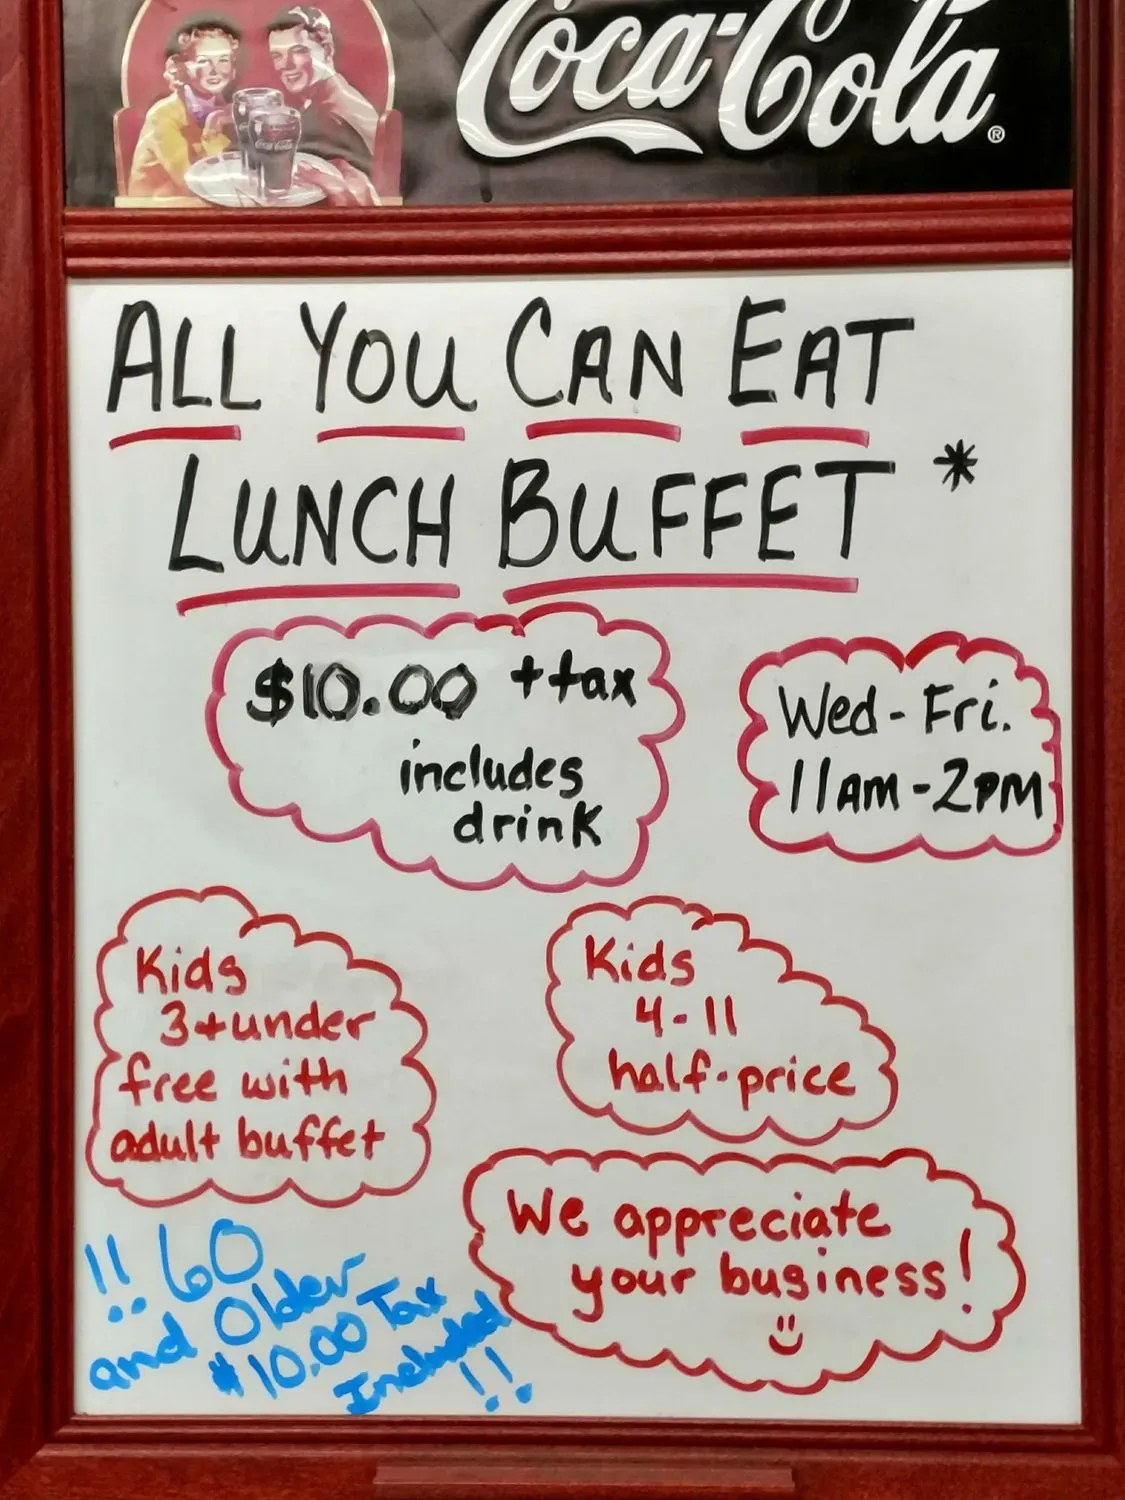 Coca-Cola®
Coca-Cola
ALL YOU CAN EAT
LUNCH BUFFET *
$10.00 + tax
includes
drink
Wed - Fri.
11AM - 2PM
Kids
3 + under
free with
adult buffet
Kids
4 - 11
half-price
We appreciate
your business!
!! 60
and Older
$10.00 Tax
Included
!!